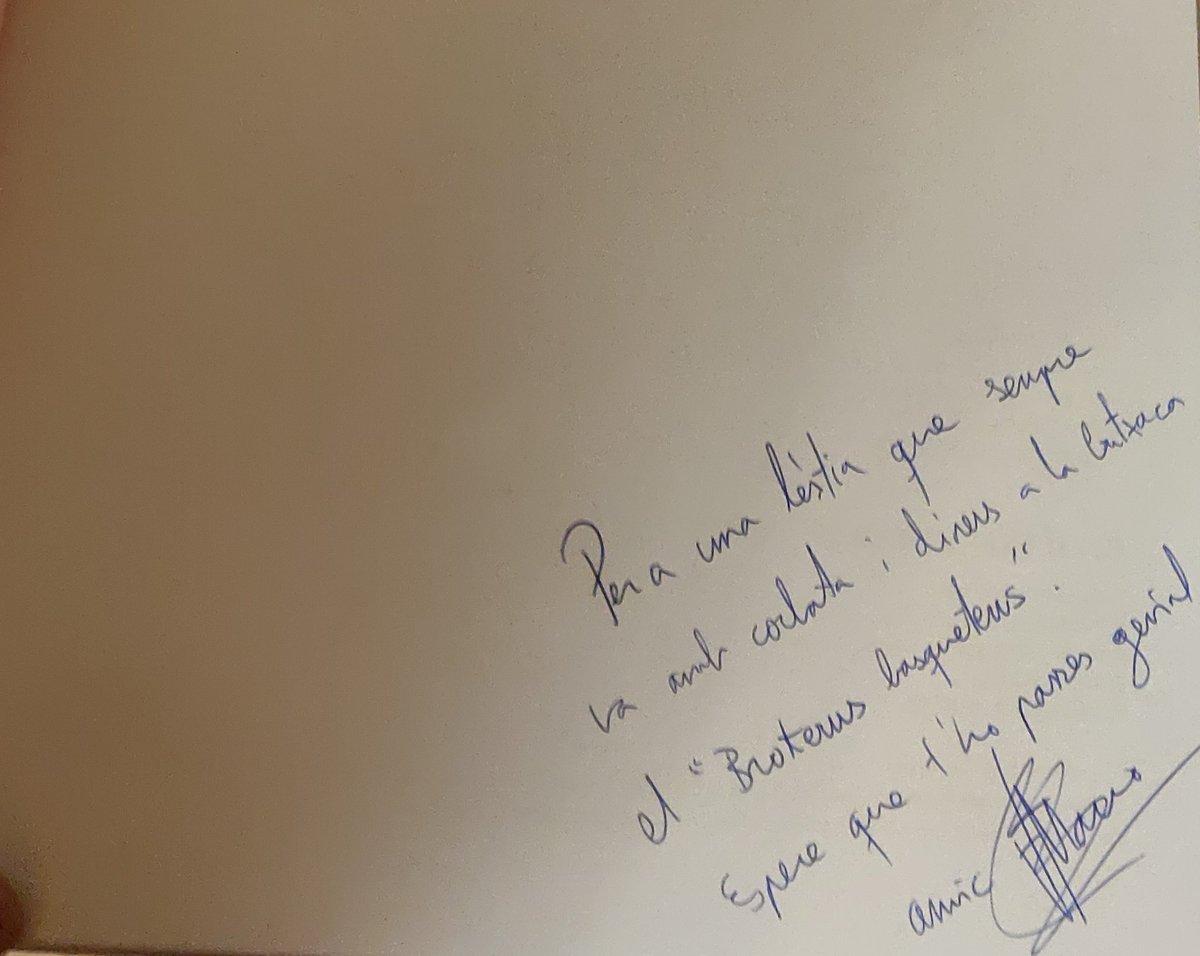 Per a una bèstia que sempre
va amb corbata i diners a la butxaca
el "Broterus basqueterus".
Espere que t'ho passes genial
amic